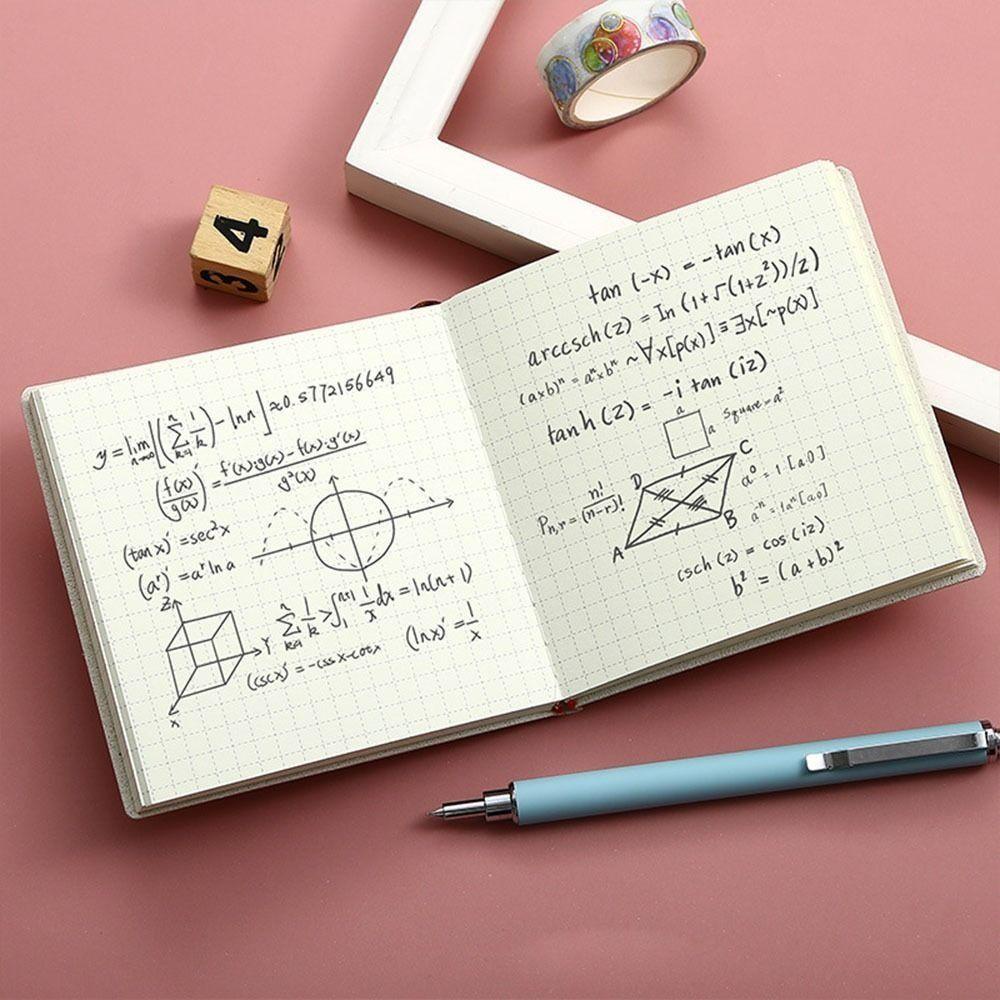 y = lim n→∞ [(∑ n k=1 1/k) - ln n] ≈ 0.5772156649
(f(x)/g(x))' = f'(x)·g(x) - f(x)·g'(x) / g²(x)
(tan x)' = sec²x
(aˣ)' = aˣ ln a
Z
Y
X
∑ n k=1 1/k > ∫ n+1 1 1/x dx = ln(n+1)
(csc x)' = -csc x·cot x
(ln x)' = 1/x
tan (-x) = -tan (x)
arccsch (z) = ln (1+√(1+z²))/z)
(a×b)ⁿ = aⁿ×bⁿ ~∀x[p(x)] ≡ ∃x[~p(x)]
tanh (z) = -i tan (iz)
a
a
Square = a²
Pn,r = n!/(n-r)!
D
C
A
B
a⁰ = 1 [a≠0]
csch (z) = cos (iz)
b² = (a+b)²
4
3